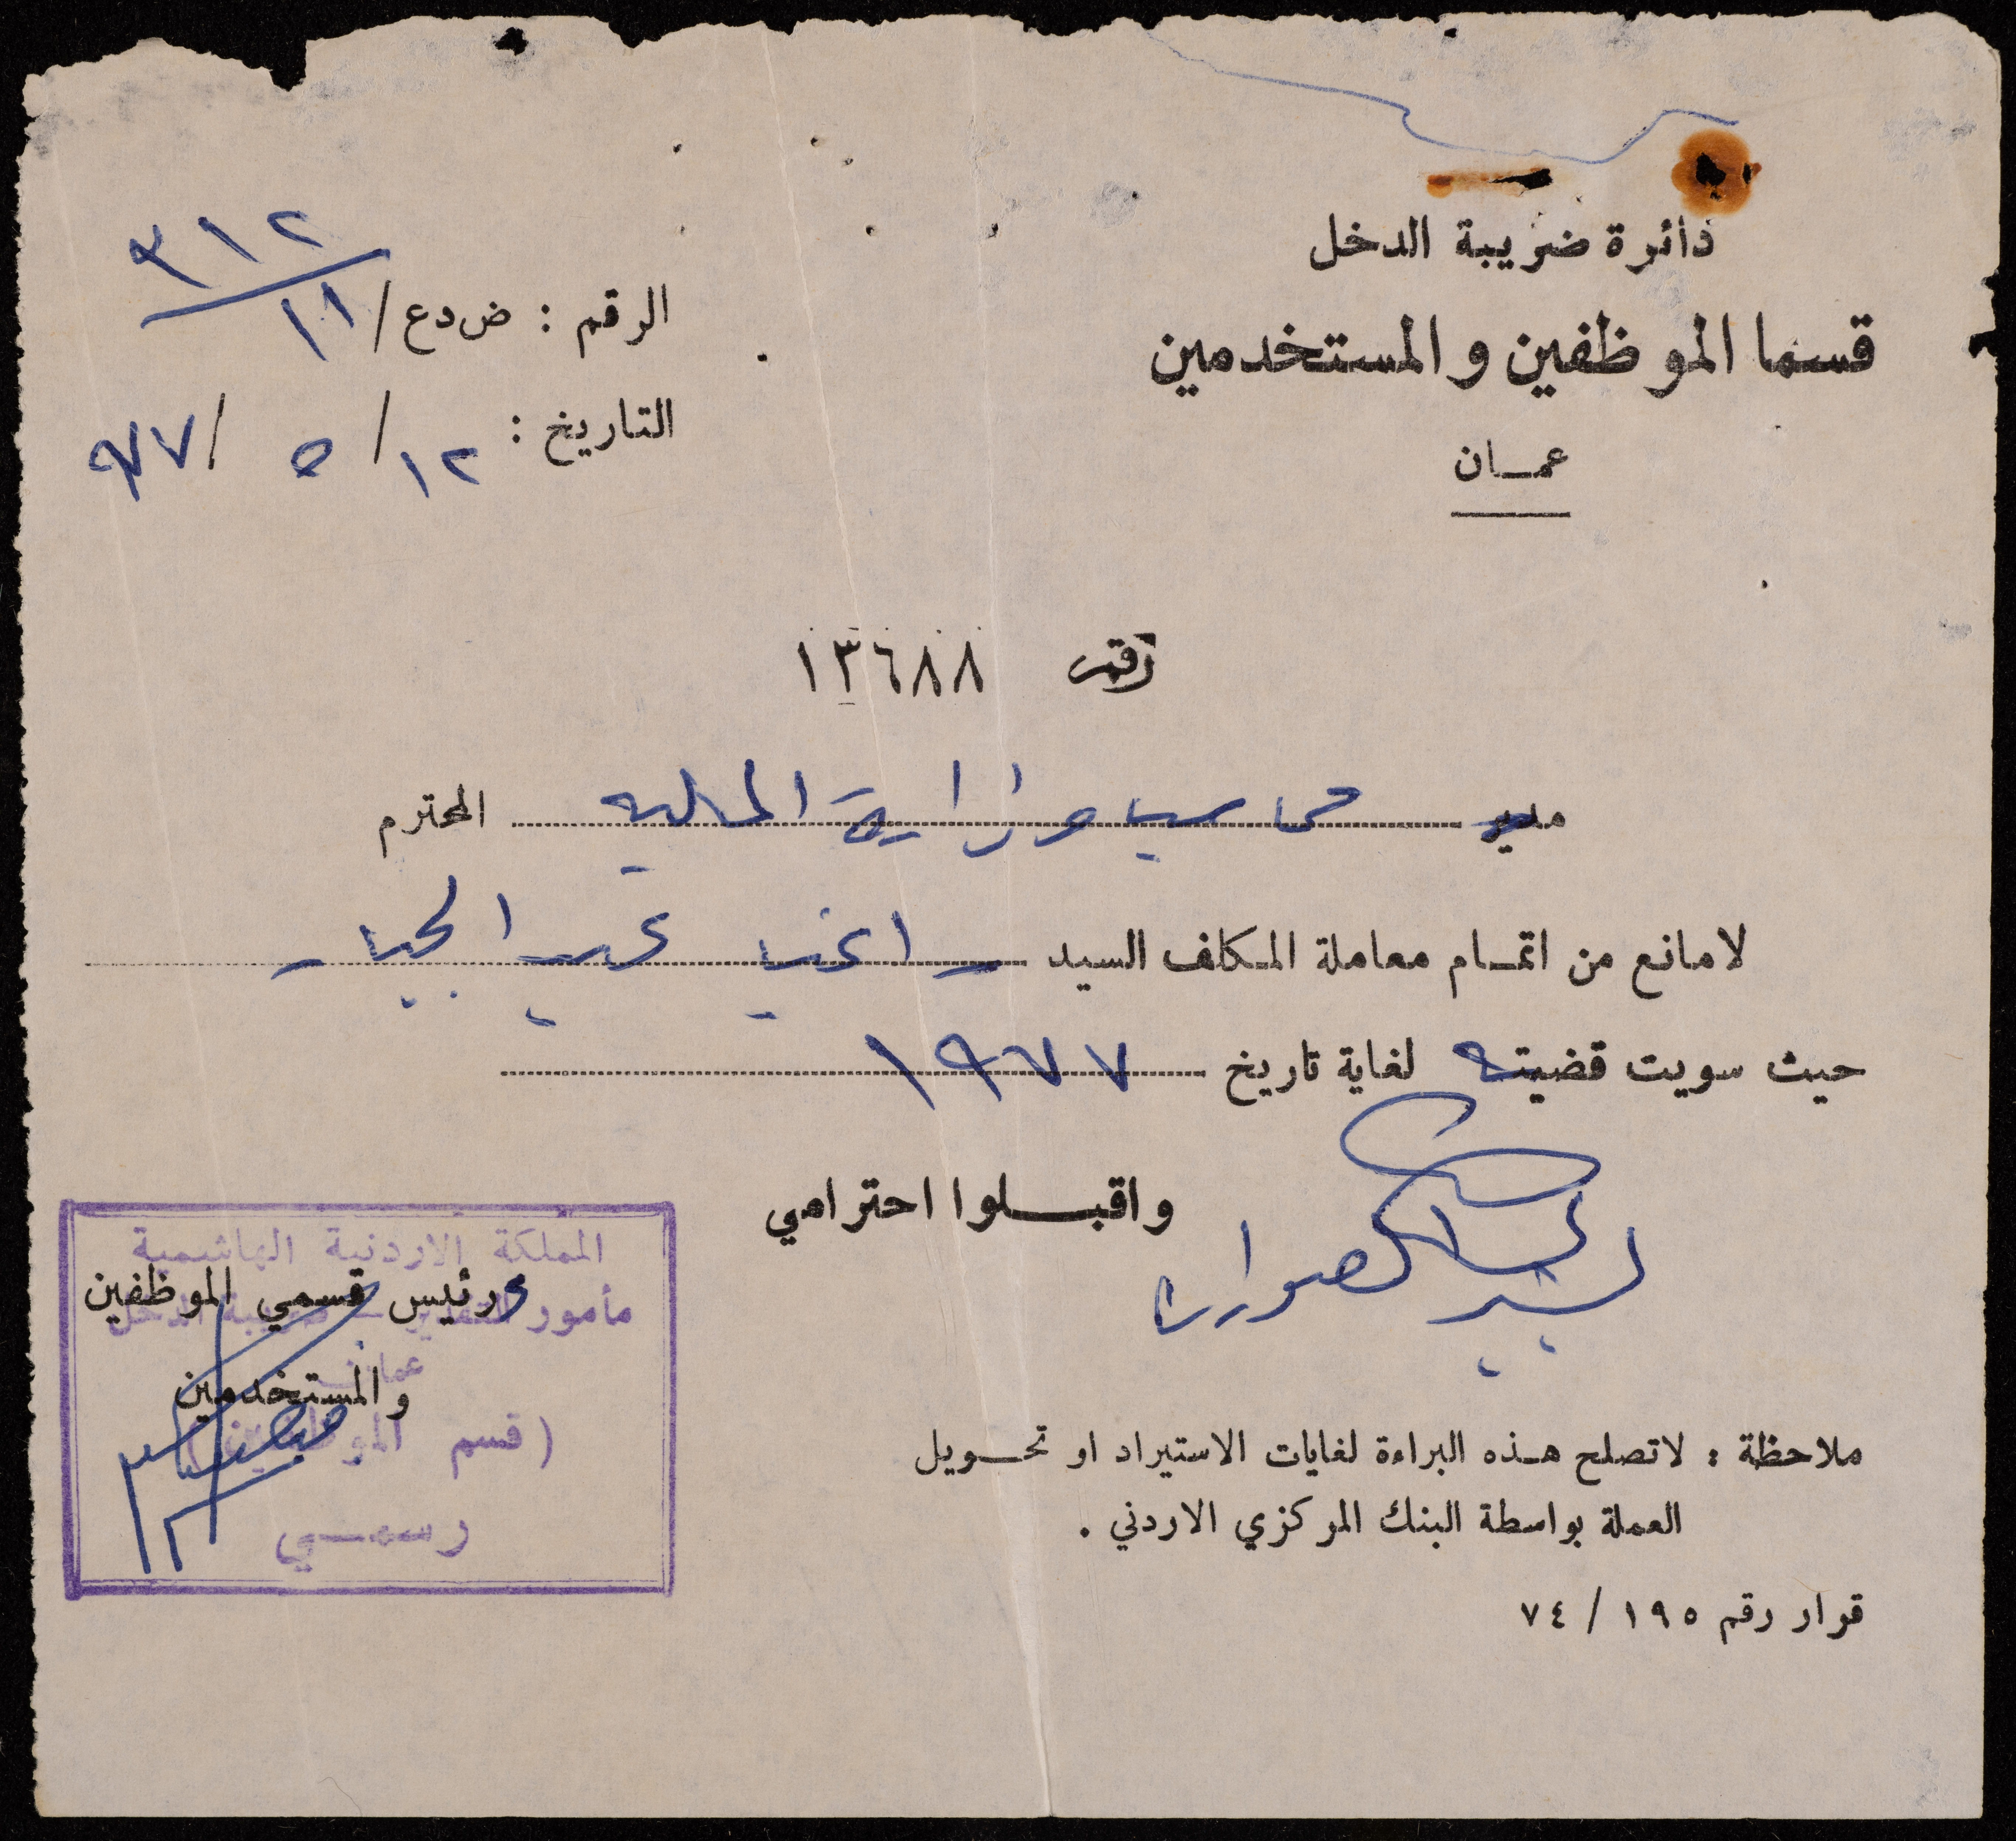 دائرة ضريبة الدخل
قسما الموظفين والمستخدمين
عمــان
الرقم : ض دع / ١١ / ٣١٢
التاريخ : ١٢ / ٥ / ٩٧٧
رقم ١٣٦٨٨
مدير محاسب وزارة المالية المحترم
لامانع من اتمــام معاملة المكلف السيد راغب عبد الجبار
حيث سويت قضيته لغاية تاريخ ١٩٧٧
واقبــلوا احترامي
المملكة الاردنية الهاشمية
ورئيس قسمي الموظفين
مأمور التقدير - ضريبة الدخل
عمان
والمستخدمين
(قسم الموظفين)
رسمــي
ملاحظة : لاتصلح هــذه البراءة لغايات الاستيراد او تحــويل
العملة بواسطة البنك المركزي الاردني .
قرار رقم ١٩٥ / ٧٤